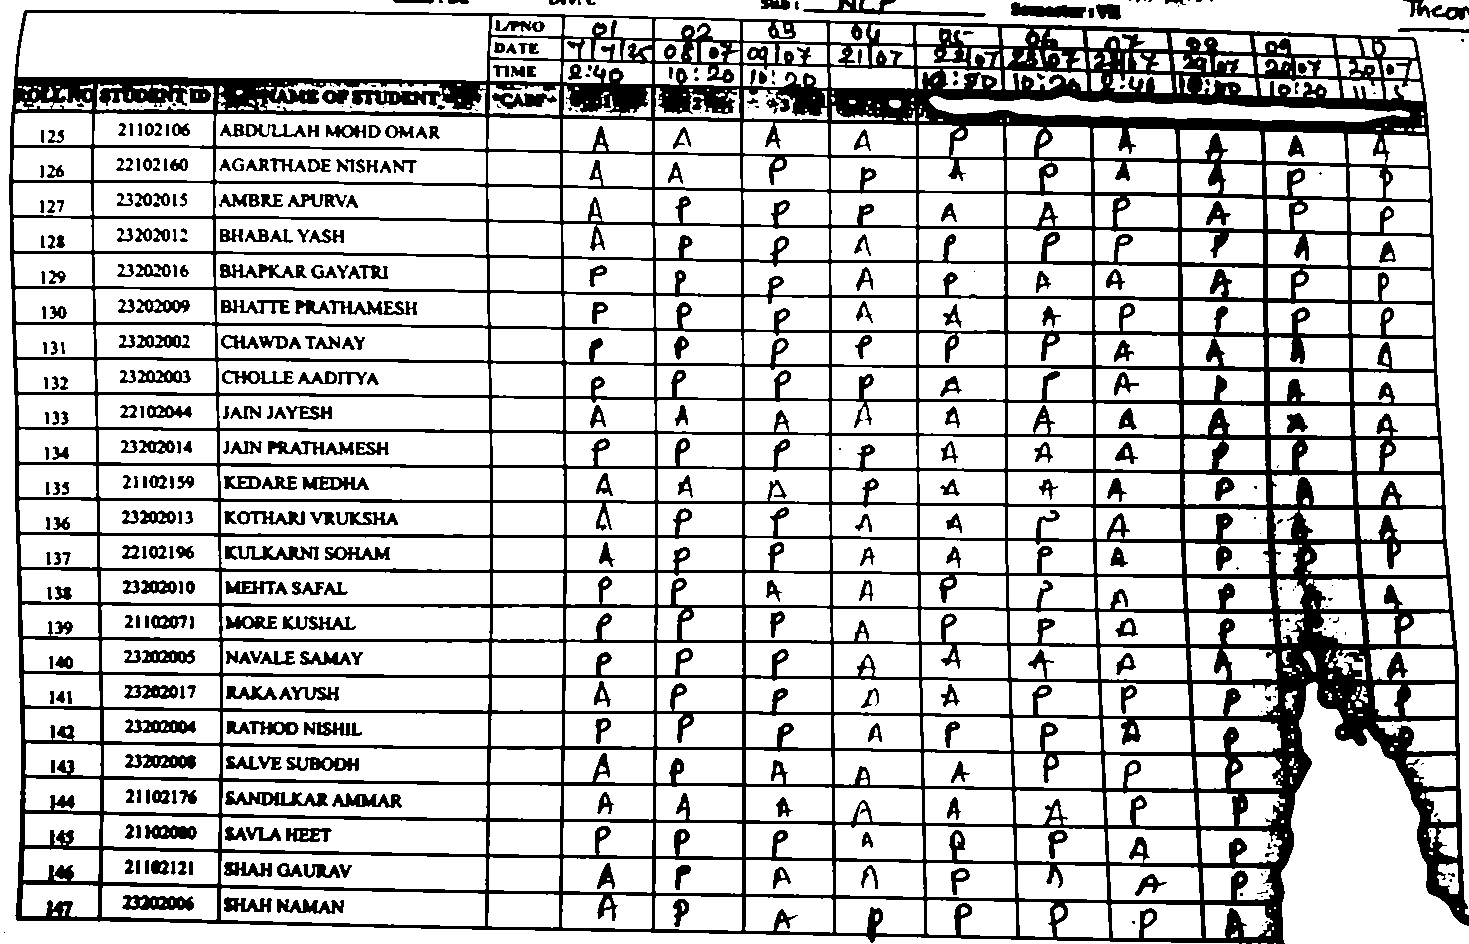 Sub: NLP Semester: VII
L/PNO 01 02 03 04 05 06 07 08 09 10
DATE 7/7/25 08/07 09/07 21/07 22/07 23/07 29/07 20/07
TIME 2:40 10:20 10:20 10:20 2:40 10:20
ROLL NO STUDENT ID NAME OF STUDENT
125 21102106 ABDULLAH MOHD OMAR A A A A P P A A A A
126 22102160 AGARTHADE NISHANT A A P P A P A A P P
127 23202015 AMBRE APURVA A P P P A A P A P P
128 23202012 BHABAL YASH A P P A P P P P A A
129 23202016 BHAPKAR GAYATRI P P P A P A A A P P
130 23202009 BHATTE PRATHAMESH P P P A A A P P P P
131 23202002 CHAWDA TANAY P P P P P P A A A A
132 23202003 CHOLLE AADITYA P P P P A P A P A A
133 22102044 JAIN JAYESH A A A A A A A A A A
134 23202014 JAIN PRATHAMESH P P P P A A A P P P
135 21102159 KEDARE MEDHA A A A P A A A P A A
136 23202013 KOTHARI VRUKSHA A P P A A P A P A A
137 22102196 KULKARNI SOHAM A P P A A P A P P P
138 23202010 MEHTA SAFAL P P A A P P A P A A
139 21102071 MORE KUSHAL P P P A P P A P P
140 23202005 NAVALE SAMAY P P P A A A A A A
141 23202017 RAKA AYUSH A P P A A P P P P
142 23202004 RATHOD NISHIL P P P A P P A P P
143 23202008 SALVE SUBODH A P A A A P P P
144 21102176 SANDILKAR AMMAR A A A A A A P P
145 21102080 SAVLA HEET P P P A P P A P
146 21102121 SHAH GAURAV A P A A P A A P
147 23202006 SHAH NAMAN A P A P P P P A